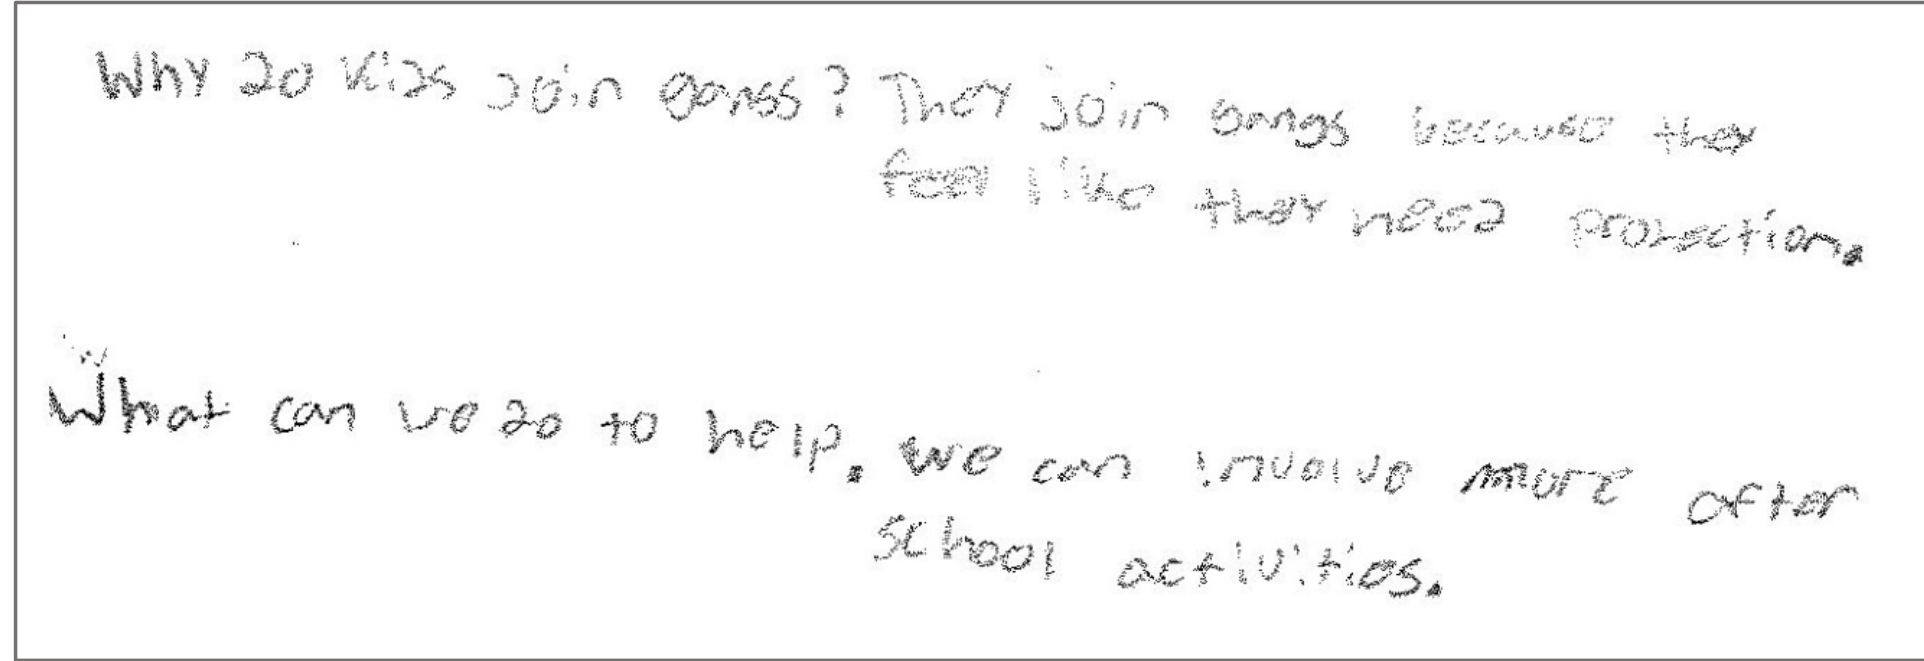 Why do kids join gangs? They join gangs because they
feel like they need protection.
What can we do to help. we can involve more after
school activities.